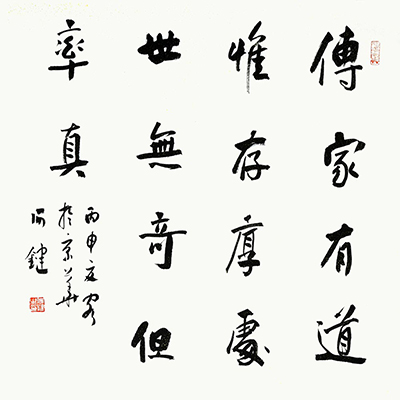 傳家有道
惟存厚處
世無奇但
率真
丙申夏客
於京華
鍵